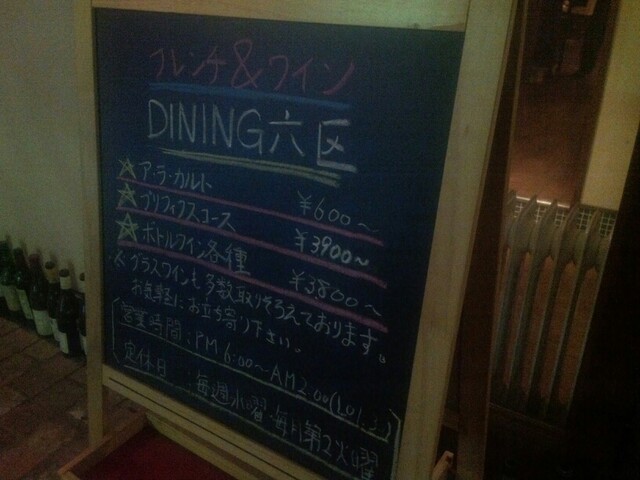 フレンチ&ワイン
DINING六区
☆ア・ラ・カルト ¥600〜
☆プリフィクスコース ¥3900〜
☆ボトルワイン各種 ¥3,800〜
※グラスワインも多数取りそろえております。
お気軽にお立ち寄り下さい。
営業時間:PM6:00〜AM2:00(L.O1:30)
定休日:毎週水曜・毎月第2火曜